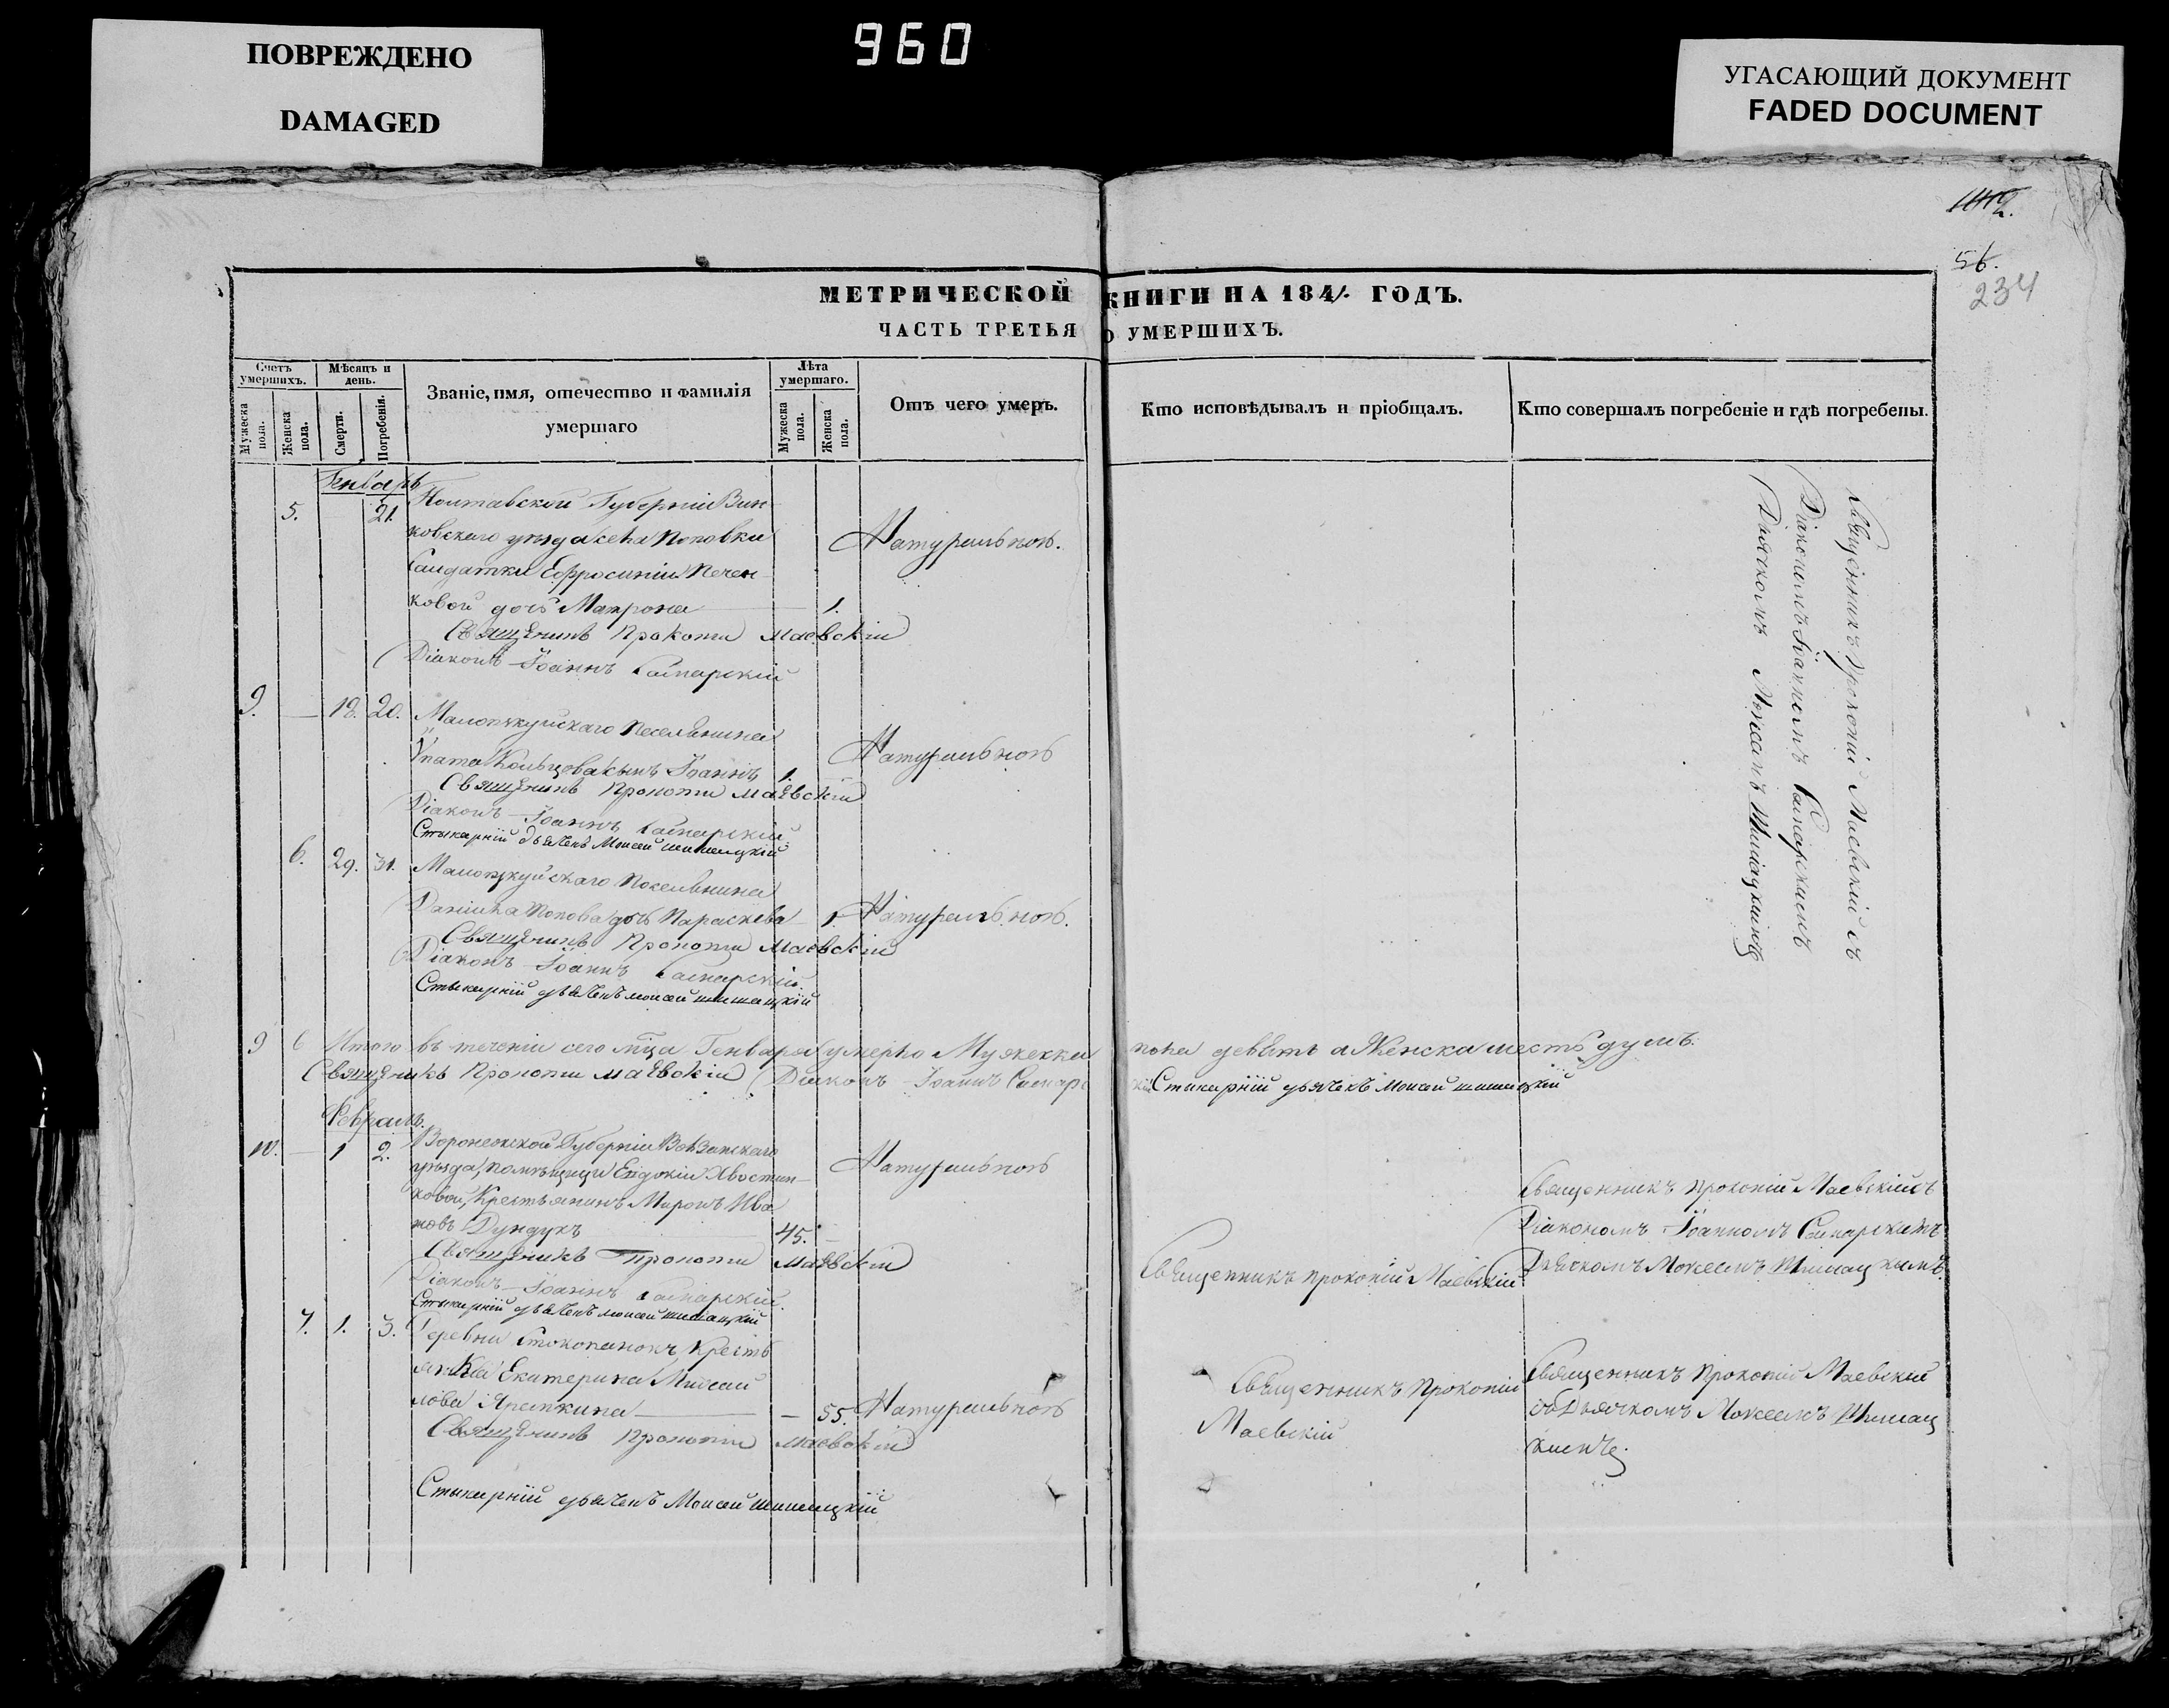 ПОВРЕЖДЕНО
DAMAGED
960
УГАСАЮЩИЙ ДОКУМЕНТ
FADED DOCUMENT
56.
234
МЕТРИЧЕСКОЙ КНИГИ НА 1841. ГОДЪ.
ЧАСТЬ ТРЕТЬЯ О УМЕРШИХЪ.
Счетъ умершихъ.
Мужеска пола.
Женска пола.
Мѣсяцъ и день.
Смерти.
Погребенія.
Званіе, имя, отечество и фамилія умершаго
Лѣта умершаго.
Мужеска пола.
Женска пола.
Отъ чего умеръ.
Кто исповѣдывалъ и пріобщалъ.
Кто совершалъ погребеніе и гдѣ погребены.
Генварь
5. 21. Полтавской Губерніи Зинь
ковскаго уѣзда села Поповки
Салдатки Ефросиніи Печен
ковой дочь Матрона 1.
Натурально.
Священникъ Прокопій Маевскій
Діаконъ Іоаннъ
9. — 18. 20. Поселянина
Ипата Кольцова сынъ Іоаннъ 1.
Натурально
Священникъ Прокопій Маевскій
Діаконъ Іоаннъ
Стихарній дьячекъ Моисей Шишацкій
6. 29. 31. Поселянина
Данила Попова дочь Параскева 1.
Натурально.
Священникъ Прокопій Маевскій
Діаконъ Іоаннъ
Стихарній дьячекъ Моисей Шишацкій
Священникъ Прокопій Маевскій съ
Діакономъ Іоанномъ
Дьячкомъ Шишацкимъ
9 6 Итого въ теченіи сего мца Генваря умерло Мужеска пола девять а Женска шесть душъ.
Священникъ Прокопій Маевскій Діаконъ Іоаннъ Стихарній дьячекъ Моисей Шишацкій
Февраль.
10. — 1 2. Воронежской Губерніи
уѣзда, помѣщицы Евдокіи Хвостин
ковой, Крестьянинъ Миронъ Ива
новъ Дундукъ 45. —
Натурально
Священникъ Прокопій Маевскій
Діаконъ Іоаннъ
Стихарній дьячекъ Моисей Шишацкій
Священникъ Прокопій Маевскій
Священникъ Прокопій Маевскій съ
Діакономъ Іоанномъ
Дьячкомъ Моисеемъ Шишацкимъ.
7. 1. 3. Деревни Кресть
янка Екатерина Михай
лова — 55.
Натурально
Священникъ Прокопій Маевскій
Стихарній дьячекъ Моисей Шишацкій
Священникъ Прокопій
Маевскій
Священникъ Прокопій Маевскій
съ Дьячкомъ Моисеемъ Шишац
кимъ.